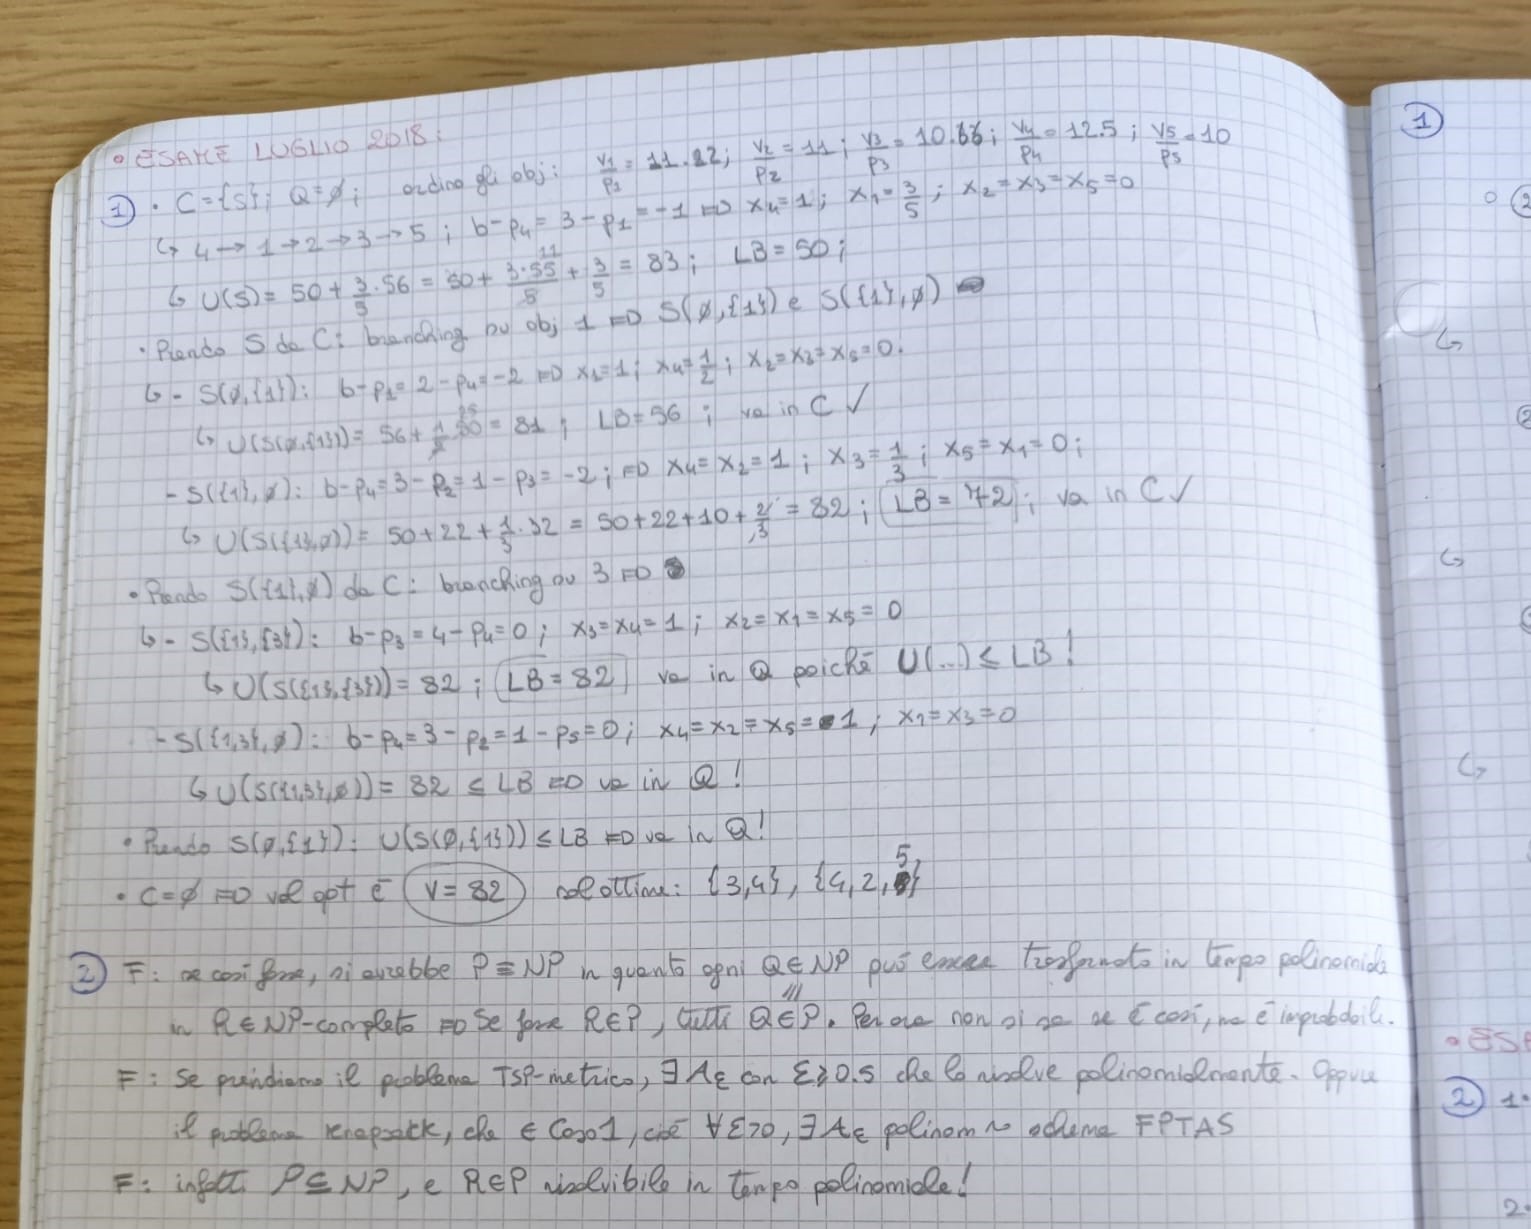 • ESAME LUGLIO 2018:
① • C={S}; Q=∅; ordino gli obj: v1/p1 = 11.22; v2/p2 = 11; v3/p3 = 10.66; v4/p4 = 12.5; v5/p5 = 10
↳ 4→1→2→3→5; b-p4=3-p1=-1 => x4=1; x1=3/5; x2=x3=x5=0
↳ U(S)= 50+3/5·56 = 50+ 3·55/5 + 3/5 = 83; LB=50;
11
• Prendo S da C: branching su obj 1 => S(∅,{1}) e S({1},∅)
↳ - S(∅,{1}): b-p1=2-p4=-2 => x1=1; x4=1/2; x2=x3=x5=0.
↳ U(S(∅,{1}))= 56+1/2·50= 81; LB=56; va in C ✓
25
- S({1},∅): b-p4=3-p2=1-p3=-2; => x4=x2=1; x3=1/3; x5=x1=0;
↳ U(S({1},∅))= 50+22+1/3·32 = 50+22+10+2/3 = 82; LB=72; va in C ✓
• Prendo S({1},∅) da C: branching su 3 =>
↳ - S({1},{3}): b-p3=4-p4=0; x3=x4=1; x2=x1=x5=0
↳ U(S({1},{3}))= 82; LB=82 va in Q poichè U(...)≤LB!
- S({1,3},∅): b-p4=3-p2=1-p5=0; x4=x2=x5=1; x1=x3=0
↳ U(S({1,3},∅))= 82 ≤ LB => va in Q!
• Prendo S(∅,{1}): U(S(∅,{1})) ≤ LB => va in Q!
• C=∅ => val opt è V=82 sol ottime: {3,4}, {4,2,5}
② F: se così fosse, si avrebbe P≡NP in quanto ogni Q∈NP può essere trasformato in tempo polinomiale
in R∈NP-completo => Se fosse R∈P, tutti Q∈P. Per ora non si sa se è così, ma è improbabile.
F: Se prendiamo il problema TSP-metrico, ∃Aε con ε≥0.5 che lo risolve polinomialmente. Oppure
il problema knapsack, che ∈ Caso1, cioè ∀ε>0, ∃Aε polinom ~> schema FPTAS
F: infatti P⊆NP, e R∈P risolvibile in tempo polinomiale!
①
②
• ES
② 1.
2.